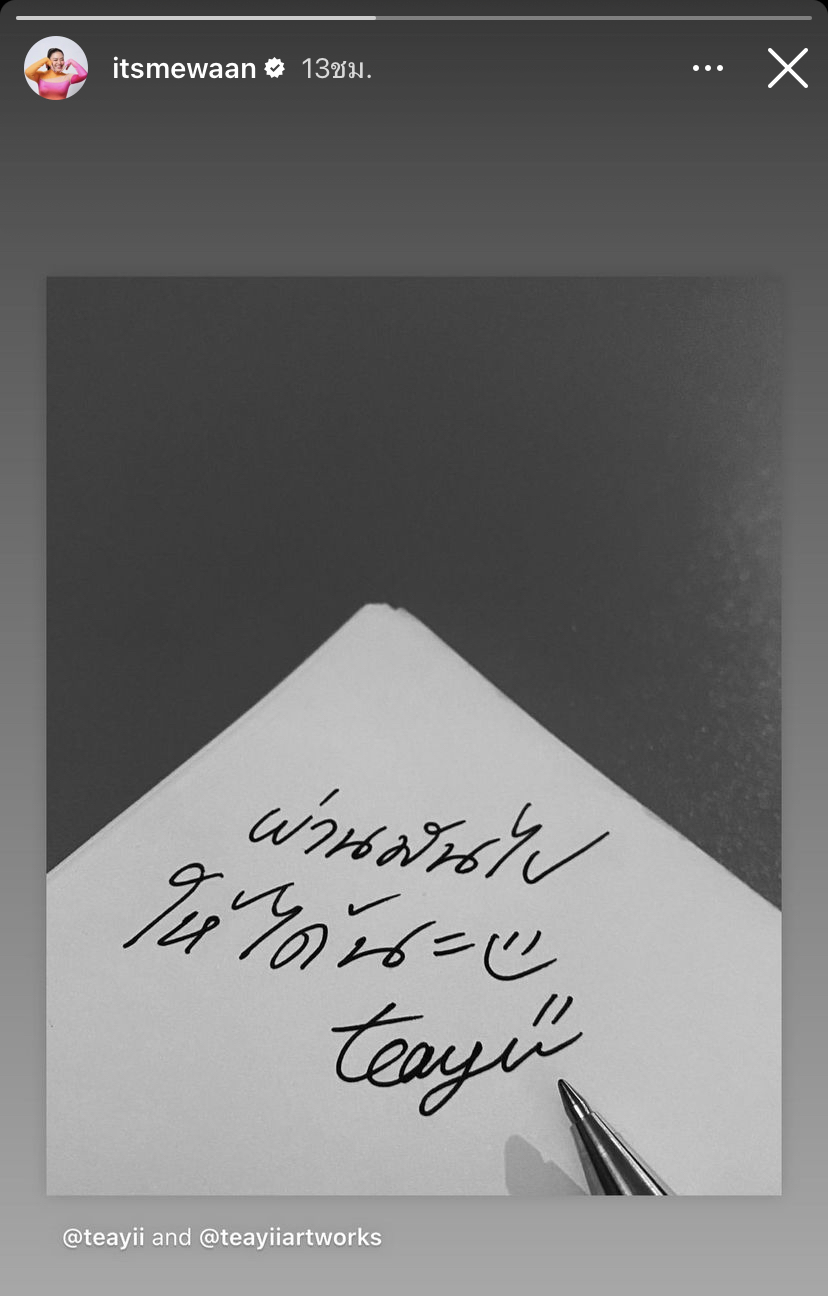 itsmewaan 13ชม.
ผ่านมันไป
ให้ได้นะ =)
teayii
@teayii and @teayiiartworks